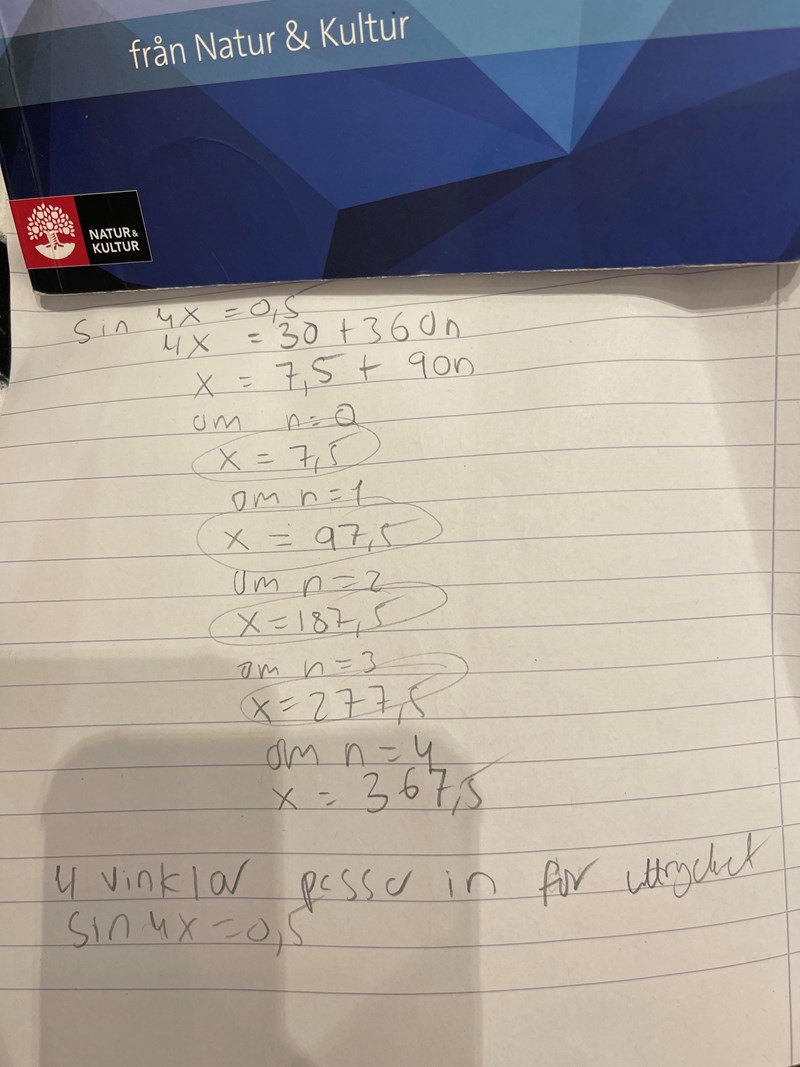 från Natur & Kultur
NATUR &
KULTUR
sin 4x = 0,5
4x = 30 + 360n
x = 7,5 + 90n
om n = 0
x = 7,5
om n = 1
x = 97,5
om n = 2
x = 187,5
om n = 3
x = 277,5
om n = 4
x = 367,5
4 vinklar passar in för uttrycket
sin 4x = 0,5